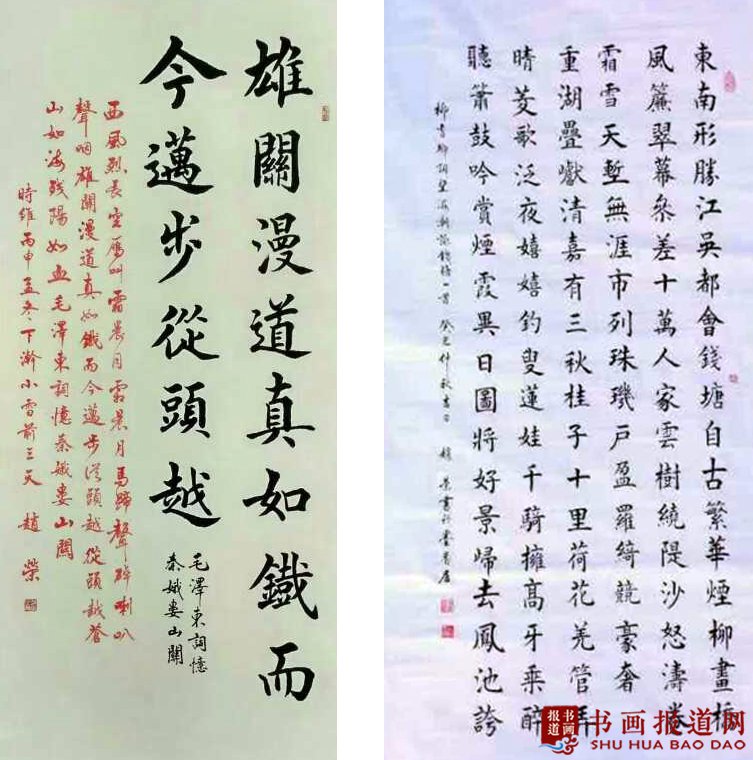 雄關漫道真如鐵而
今邁步從頭越
毛澤東詞憶
秦娥婁山關
西風烈長空雁叫霜晨月霜晨月馬蹄聲碎喇叭
聲咽雄關漫道真如鐵而今邁步從頭越從頭越蒼
山如海殘陽如血毛澤東詞憶秦娥婁山關
時維丙申孟冬下澣小雪前三天 趙榮
東南形勝江吳都會錢塘自古繁華煙柳畫橋
風簾翠幕參差十萬人家雲樹繞隄沙怒濤卷
霜雪天塹無涯市列珠璣戶盈羅綺競豪奢
重湖疊巘清嘉有三秋桂子十里荷花羌管弄
晴菱歌泛夜嬉嬉釣叟蓮娃千騎擁高牙乘醉
聽簫鼓吟賞煙霞異日圖將好景歸去鳳池誇
柳耆卿詞望海潮詠錢塘一首 癸巳仲秋吉日 趙榮書於
书画报道
书画报道网
SHU HUA BAO DAO